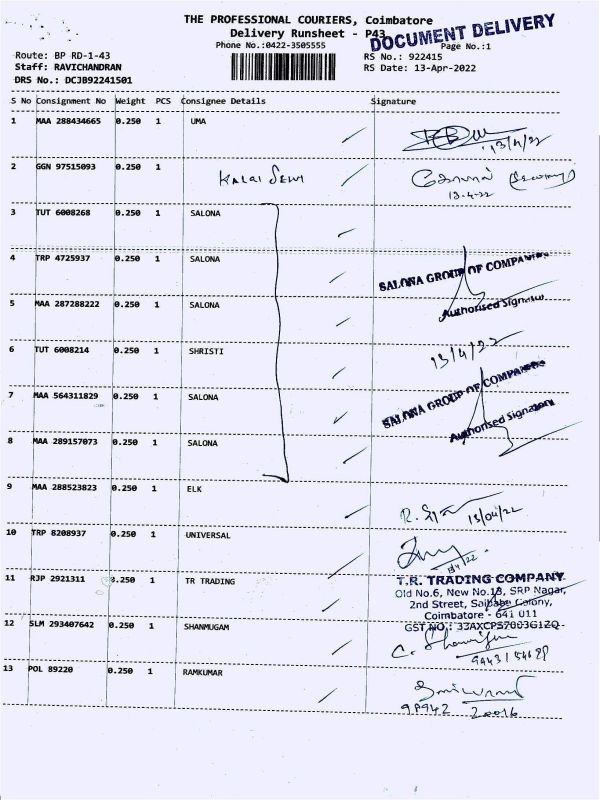 THE PROFESSIONAL COURIERS, Coimbatore
Delivery Runsheet - P43
DOCUMENT DELIVERY
Phone No.:0422-3505555
Page No.:1
Route: BP RD-1-43
RS No.: 922415
Staff: RAVICHANDRAN
RS Date: 13-Apr-2022
DRS No.: DCJB92241501
S No Consignment No Weight PCS Consignee Details Signature
1 MAA 288434665 0.250 1 UMA
13/4/22
2 GGN 97515093 0.250 1 KALAI DEVI
13-4-22
3 TUT 6008268 0.250 1 SALONA
4 TRP 4725937 0.250 1 SALONA
SALONA GROUP OF COMPANIES
Authorised Signatory
5 MAA 287288222 0.250 1 SALONA
6 TUT 6008214 0.250 1 SHRISTI
13/4/22
SALONA GROUP OF COMPANIES
7 MAA 564311829 0.250 1 SALONA
Authorised Signatory
8 MAA 289157073 0.250 1 SALONA
9 MAA 288523823 0.250 1 ELK
13/04/22
10 TRP 8208937 0.250 1 UNIVERSAL
11 RJP 2921311 0.250 1 TR TRADING
T.R. TRADING COMPANY
Old No.6, New No.18, SRP Nagar,
2nd Street, Saibaba Colony,
Coimbatore - 641 011
GST NO.: 33AXCPS7003G1ZQ
12 SLM 293407642 0.250 1 SHANMUGAM
13 POL 89220 0.250 1 RAMKUMAR
9P942 20016